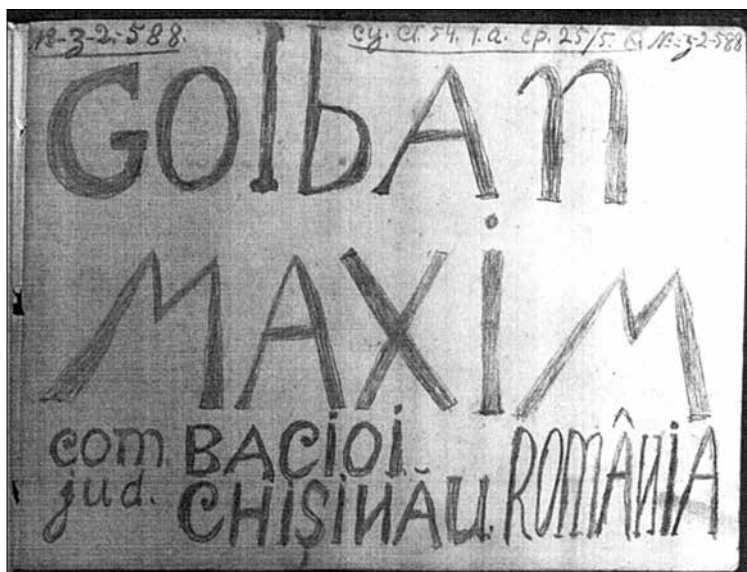 №-3-2-588. су. ст. 54. 1.а. ср. 25/5. № 3-2-588
GOlbAn
MAXiM
com. BACiOi.
jud. CHiȘiNĂU. ROMÂNiA